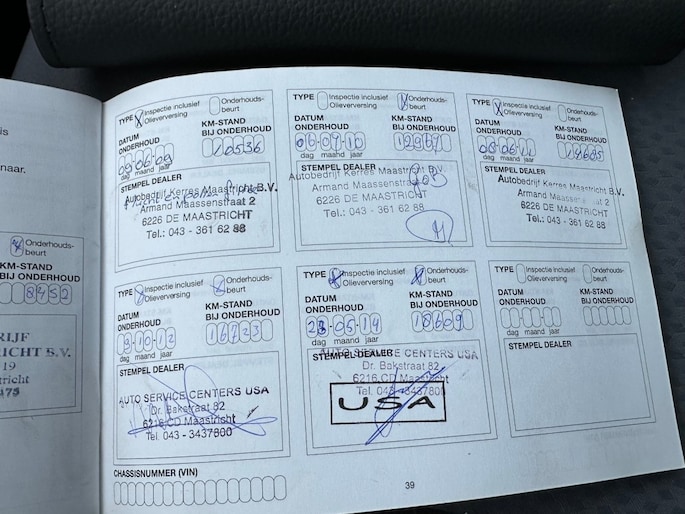 naar.
Onderhouds-
beurt
KM-STAND
BIJ ONDERHOUD
8452
TYPE X Inspectie inclusief Olieverversing Onderhouds-beurt
DATUM ONDERHOUD
KM-STAND BIJ ONDERHOUD
09-06-09
10536
dag maand jaar
STEMPEL DEALER
Autobedrijf Kerres Maastricht B.V.
Armand Maassenstraat 2
6226 DE MAASTRICHT
Tel.: 043 - 361 62 88
TYPE Inspectie inclusief Olieverversing Onderhouds-beurt
DATUM ONDERHOUD
KM-STAND BIJ ONDERHOUD
06-07-10
12967
dag maand jaar
STEMPEL DEALER
Autobedrijf Kerres Maastricht B.V.
Armand Maassenstraat 2
6226 DE MAASTRICHT
Tel.: 043 - 361 62 88
TYPE X Inspectie inclusief Olieverversing Onderhouds-beurt
DATUM ONDERHOUD
KM-STAND BIJ ONDERHOUD
08-06-11
14605
dag maand jaar
STEMPEL DEALER
Autobedrijf Kerres Maastricht B.V.
Armand Maassenstraat 2
6226 DE MAASTRICHT
Tel.: 043 - 361 62 88
TYPE Inspectie inclusief Olieverversing Onderhouds-beurt
DATUM ONDERHOUD
KM-STAND BIJ ONDERHOUD
10-12
16723
dag maand jaar
STEMPEL DEALER
AUTO SERVICE CENTERS USA
Dr. Bakstraat 82
6216 CD Maastricht
Tel. 043 - 3437800
TYPE Inspectie inclusief Olieverversing Onderhouds-beurt
DATUM ONDERHOUD
KM-STAND BIJ ONDERHOUD
05-14
18609
dag maand jaar
STEMPEL DEALER
AUTO SERVICE CENTERS USA
Dr. Bakstraat 82
6216 CD Maastricht
Tel. 043 -3437800
USA
TYPE Inspectie inclusief Olieverversing Onderhouds-beurt
DATUM ONDERHOUD
KM-STAND BIJ ONDERHOUD
dag maand jaar
STEMPEL DEALER
CHASSISNUMMER (VIN)
39